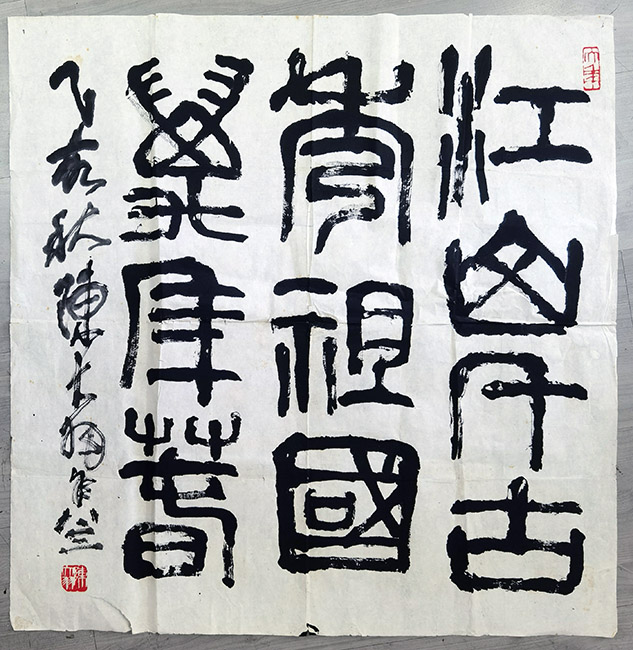 江山千古
秀祖國
萬年春
乙亥秋陳大羽年八